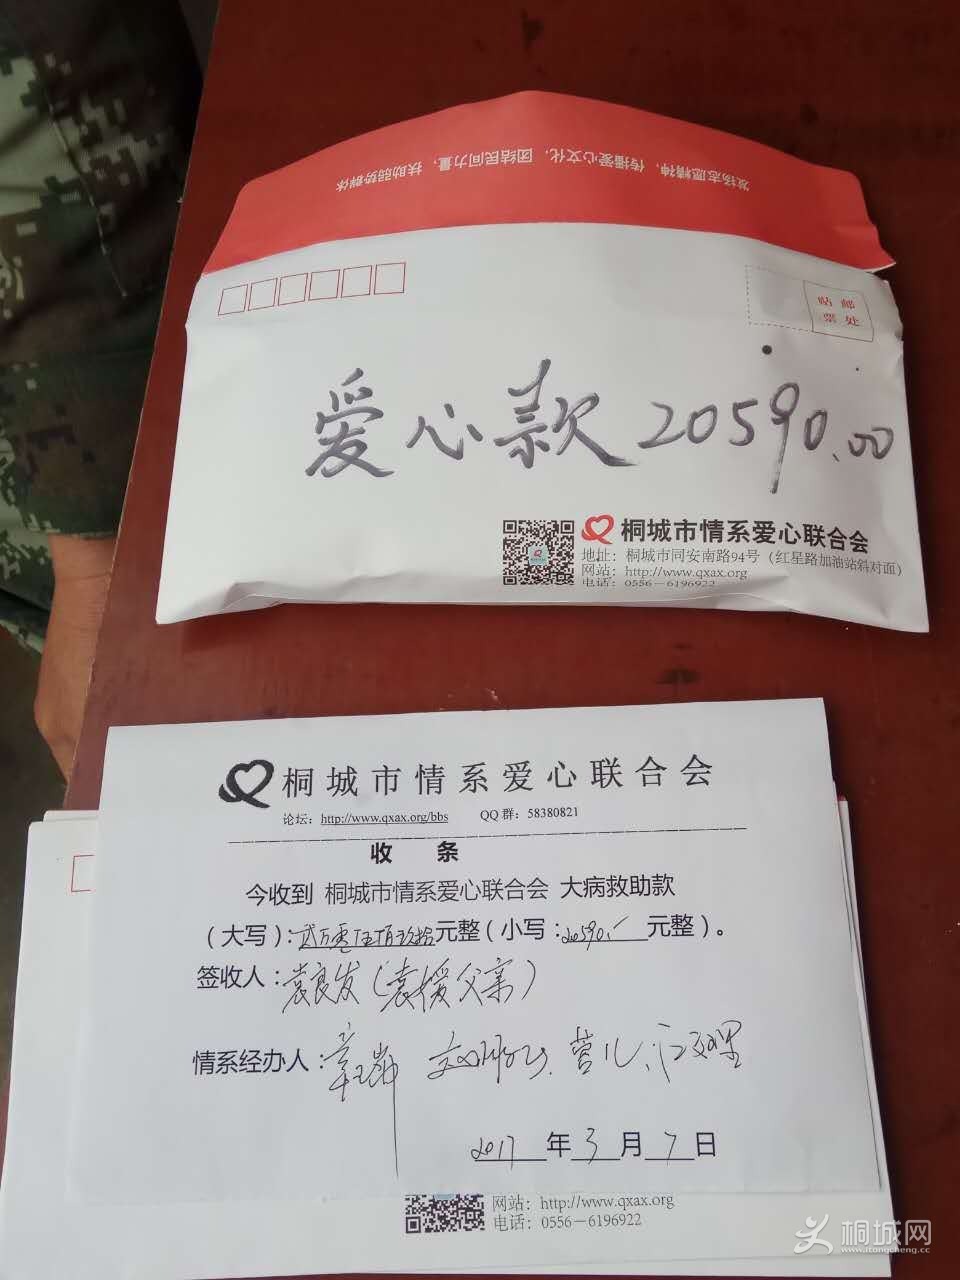 发扬志愿精神，传播爱心文化，团结民间力量，扶助弱势群体
贴 邮
票 处
爱心款20590.00
桐城市情系爱心联合会
地址：桐城市同安南路94号（红星路加油站斜对面）
网站：http://www.qxax.org
电话：0556－6196922
桐城市情系爱心联合会
论坛：http://www.qxax.org/bbs QQ 群：58380821
收 条
今收到 桐城市情系爱心联合会 大病救助款
（大写）：贰万零伍佰玖拾元整（小写：20590.- 元整）。
签收人：袁良发（袁援父亲）
情系经办人：章瑞
2017 年 3 月 7 日
网站：http://www.qxax.org
电话：0556－6196922
桐城网
www.itongcheng.cc